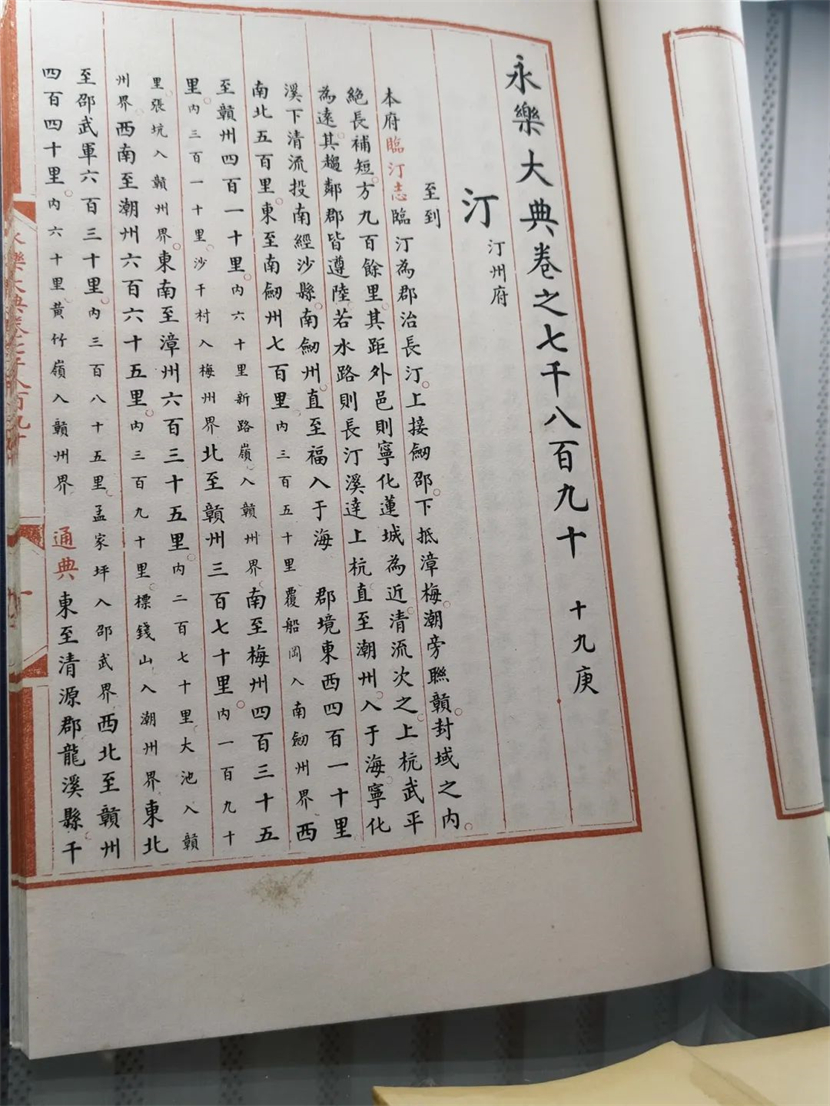 永樂大典卷之七千八百九十 十九庚
汀 汀州府
至到
本府臨汀志臨汀為郡治長汀上接劒邵下抵漳梅潮旁聮贛封域之内
絕長補短方九百餘里其距外邑則寧化蓮城為近清流次之上杭武平
為遠其趨鄰郡皆遵陸若水路則長汀溪達上杭直至潮州入于海寧化
溪下清流投南經沙縣南劒州直至福入于海 郡境東西四百一十里
南北五百里東至南劒州七百里内三百五十里覆船岡入南劒州界西
至贛州四百一十里内六十里新路嶺入贛州界南至梅州四百三十五
里内三百一十里沙千村入梅州界北至贛州三百七十里内一百九十
里張坑入贛州界東南至漳州六百三十五里内二百七十里大池入贛
州界西南至潮州六百六十五里内三百九十里標錢山入潮州界東北
至邵武軍六百三十里内三百八十五里孟家坪入邵武界西北至贛州
四百四十里内六十里黃竹嶺入贛州界 通典東至清源郡龍溪縣千
永樂大典卷七千八百九十